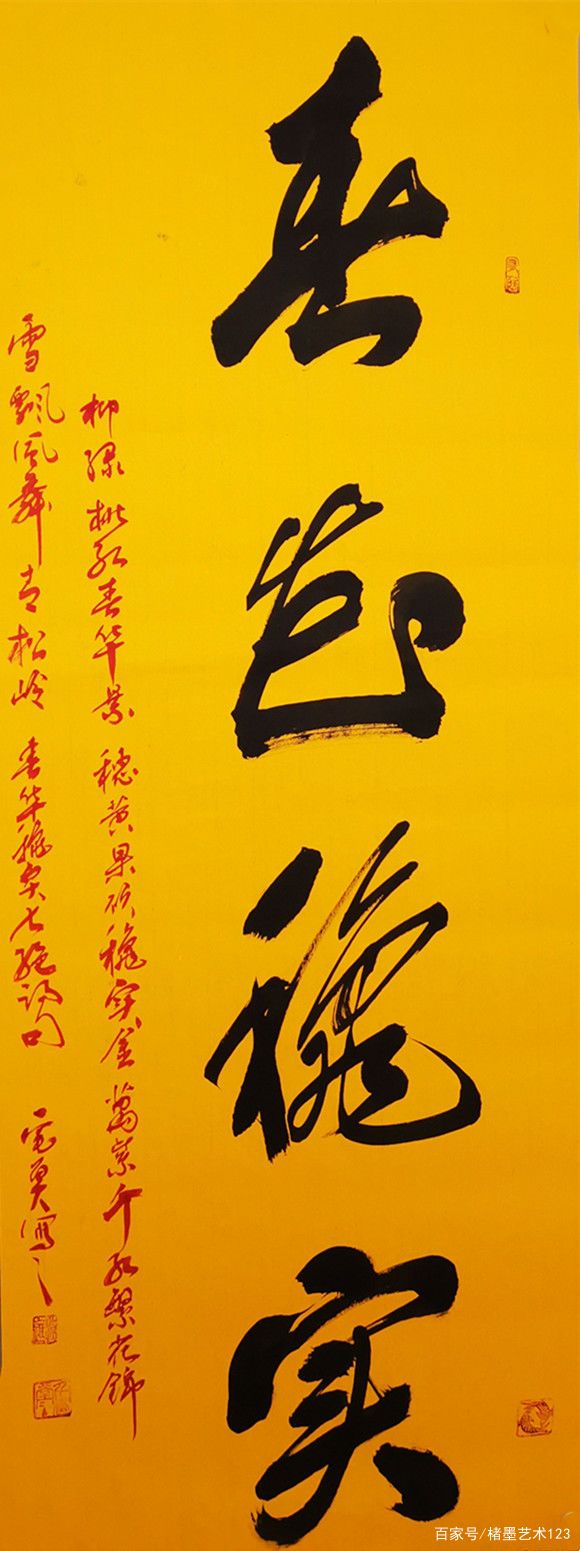 春华穐实
柳绿桃红春华景 穗黄果硕穐实金 萬紫千红繁花锦
雪飘风舞青松岭 春华穐实七绝诗句 寫之
百家号/楮墨艺术123